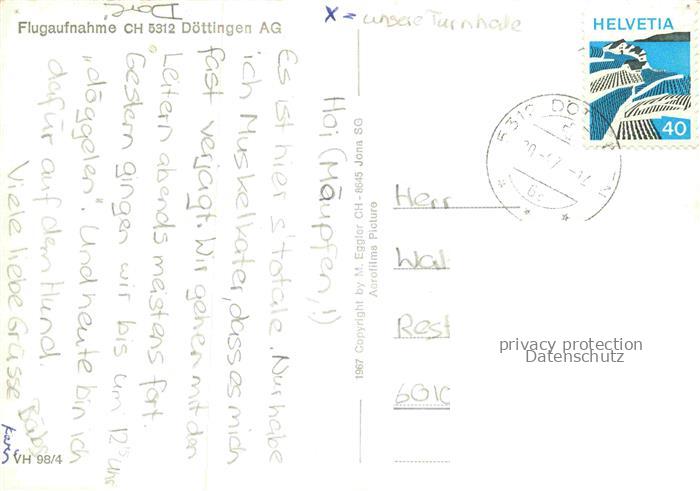 Flugaufnahme CH 5312 Döttingen AG
x = unsere Turnhalle
HELVETIA
40
5312 DÖTTINGEN
Hoi (Mäupfen,!)
Es ist hier s'totale. Nur habe
ich Muskelkater, dass es mich
fast verjagt. Wir gehen mit den
Leitern abends meistens fort.
Gestern gingen wir bis um 12 Uhr
"döggelen". Und heute bin ich
dafür auf dem Hund.
Viele liebe Grüsse
Babs
1967 Copyright by M. Eggler CH - 8645 Jona SG
Aerofilms Picture
Herr
Wal
Rest
6010
privacy protection
Datenschutz
VH 98/4